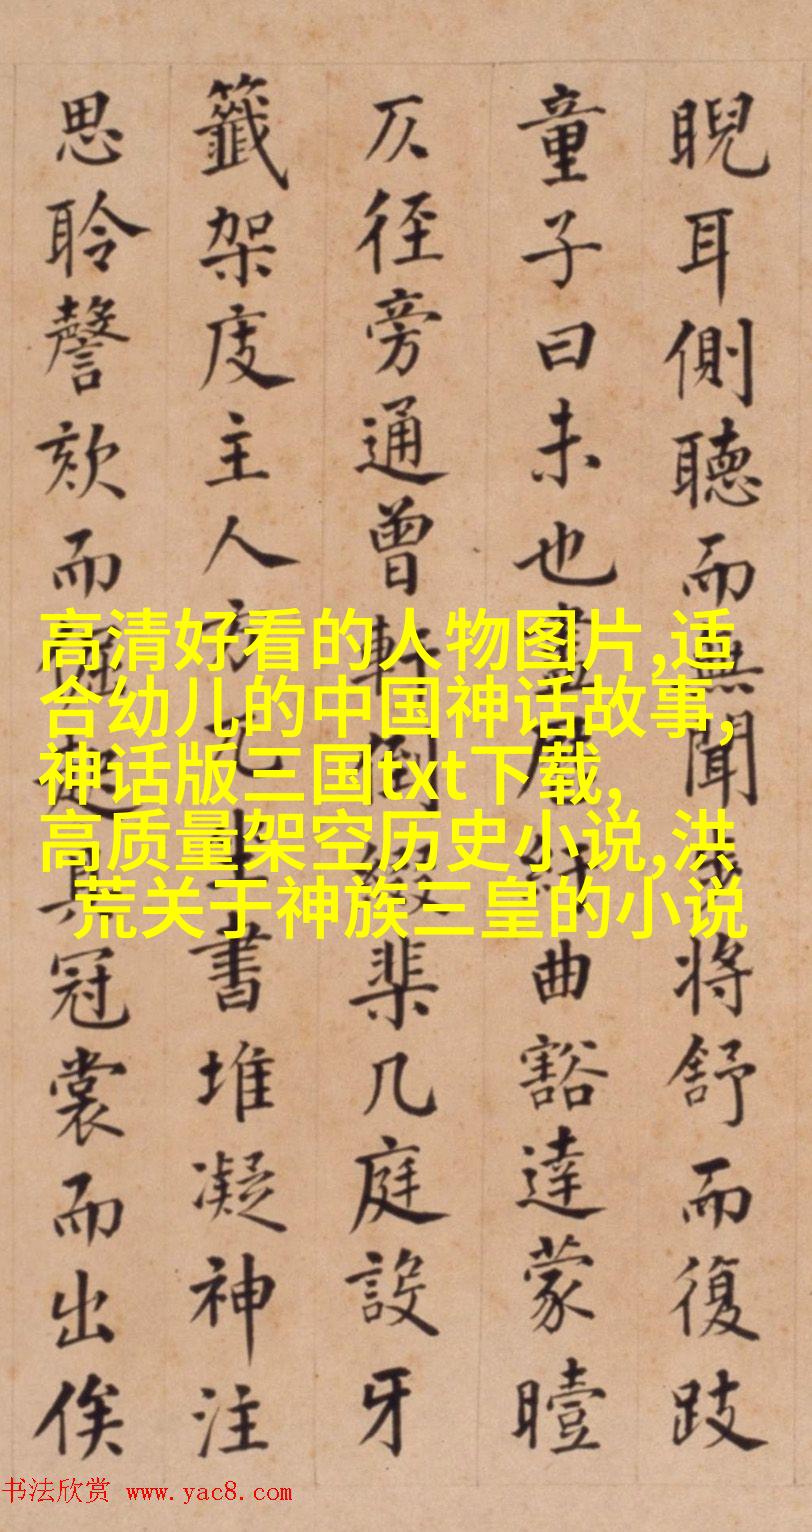 睨耳側聽而無聞將舒而復跂
童子曰未也房曲豁達蒙曀
仄徑旁通曾軒倒綴棐几庭設牙
籤架庋主人方兀坐書堆凝神注
思聆謦欬而起具冠裳而出俟
高清好看的人物图片,适
合幼儿的中国神话故事,
神话版三国txt下载,
高质量架空历史小说,洪
荒关于神族三皇的小说
书法欣赏 www.yac8.com